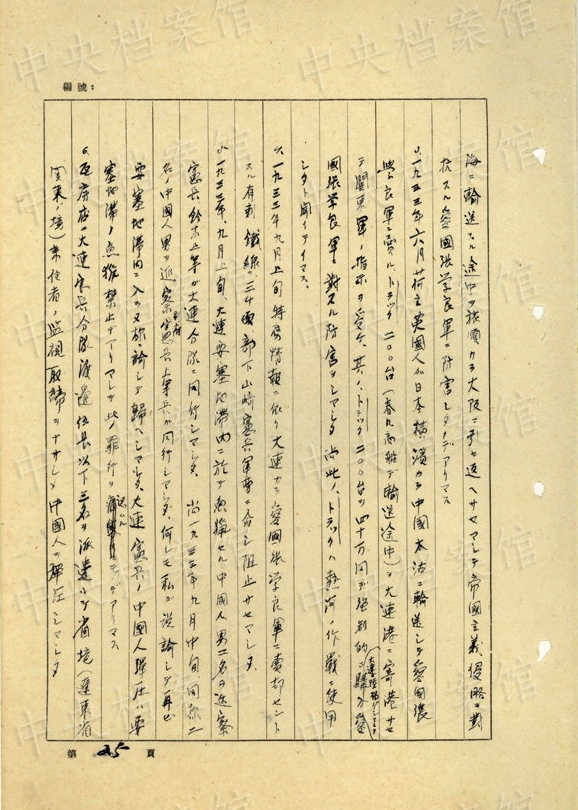 編號：
海ニ輸送スル途中ヲ旅順カラ大阪ニ引キ返ヘサセマシテ帝國主義侵略ニ対
抗スル愛國張学良軍ニ防害シタノデアリマス
一九三三年六月荷主英國人ガ日本横濱カラ中國本沽ニ輸送シテ愛國張
学良軍ニ賣ル、トラック二〇〇台(春丸商船デ輸送途中)ヲ大連港ニ寄港サセ
テ関東軍ノ指示ヲ受ケ、其ノ、トラック二〇〇台ヲ四十万円デ強制的ニ購ヒ愛
國張学良軍ニ対スル防害ヲシマシタ 尚此ノ、トラックハ熱河ノ作戰ニ使用
シタト聞イテイマス、
一九三三年九月上旬特務情報ニ依リ大連カラ愛國張学良軍ニ賣却セント
スル有刺鐵線ヲ三ケ 部下山崎憲兵軍曹ニ命シ阻止サセマシタ、
一九三三年、九月上旬、大連要塞地帯内ニ於テ魚猟セル中國人男二名ヲ近察
憲兵鈴木上等ガ大連分隊ニ同行シマシタ、尚一九三三年九月中旬同ジニ
名ノ中國人男ヲ近察憲兵上等兵ガ同行シマシタ、何レモ私ガ説諭シテ再ビ
要塞地帯内ニ入ラヌ様諭シテ歸ヘシマシタ、大連憲兵ノ中國人彈圧ハ要
塞地帯ノ魚猟禁止デアリマシテ此ノ罪行ヲ デアリマス
瓦房店ニ大連憲兵分隊渡邉伍長以下三名ヲ派遣シテ省境(遼東省
関東ノ境)来往者ノ監視取締ヲナサシメ中國人ヲ彈圧シマシタ
第 25 頁
中央档案馆